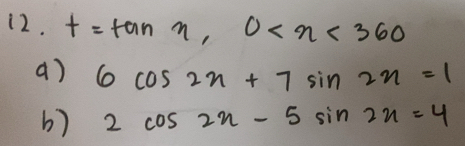 12. t = tan x, 0 < x < 360
a) 6 cos 2x + 7 sin 2x = 1
b) 2 cos 2x - 5 sin 2x = 4